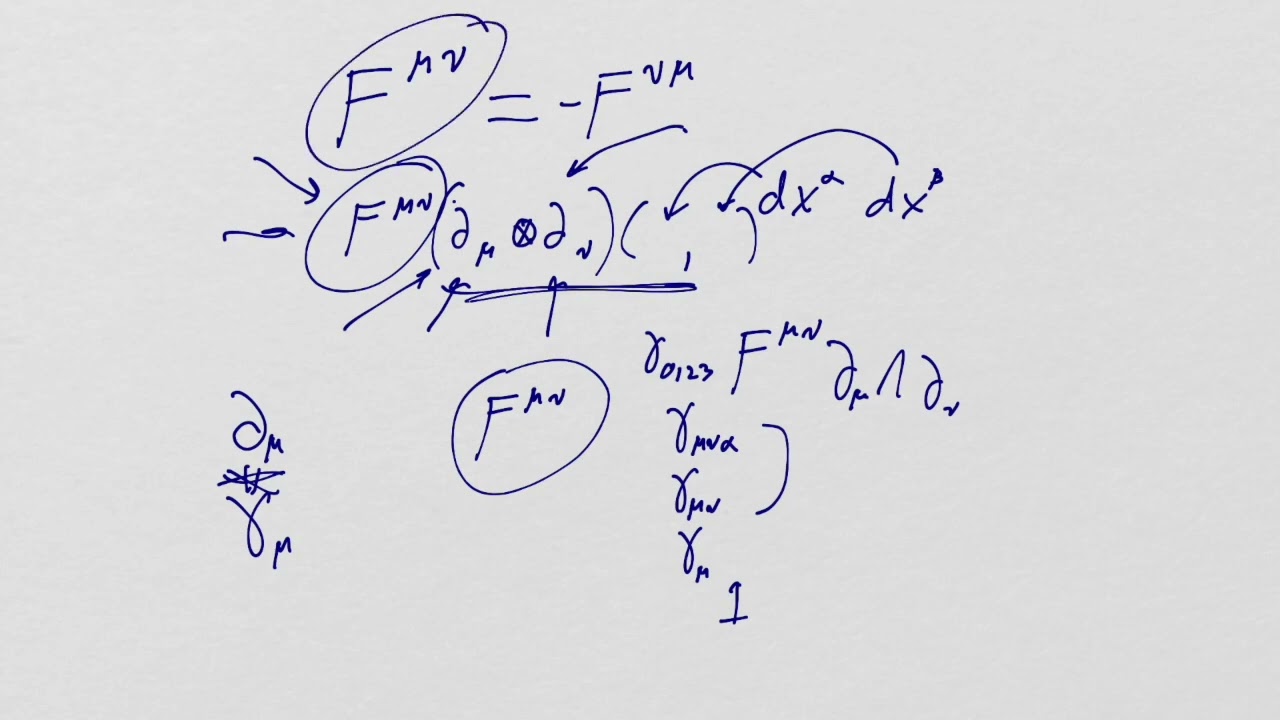 F^{μν} = -F^{νμ}
F^{μν} (∂_μ ⊗ ∂_ν) ( , ) dx^α dx^β
γ_{0123} F^{μν} ∂_μ ∧ ∂_ν
F^{μν}
γ_{μνα}
∂_μ
γ_{μν}
γ_μ
γ_μ
1